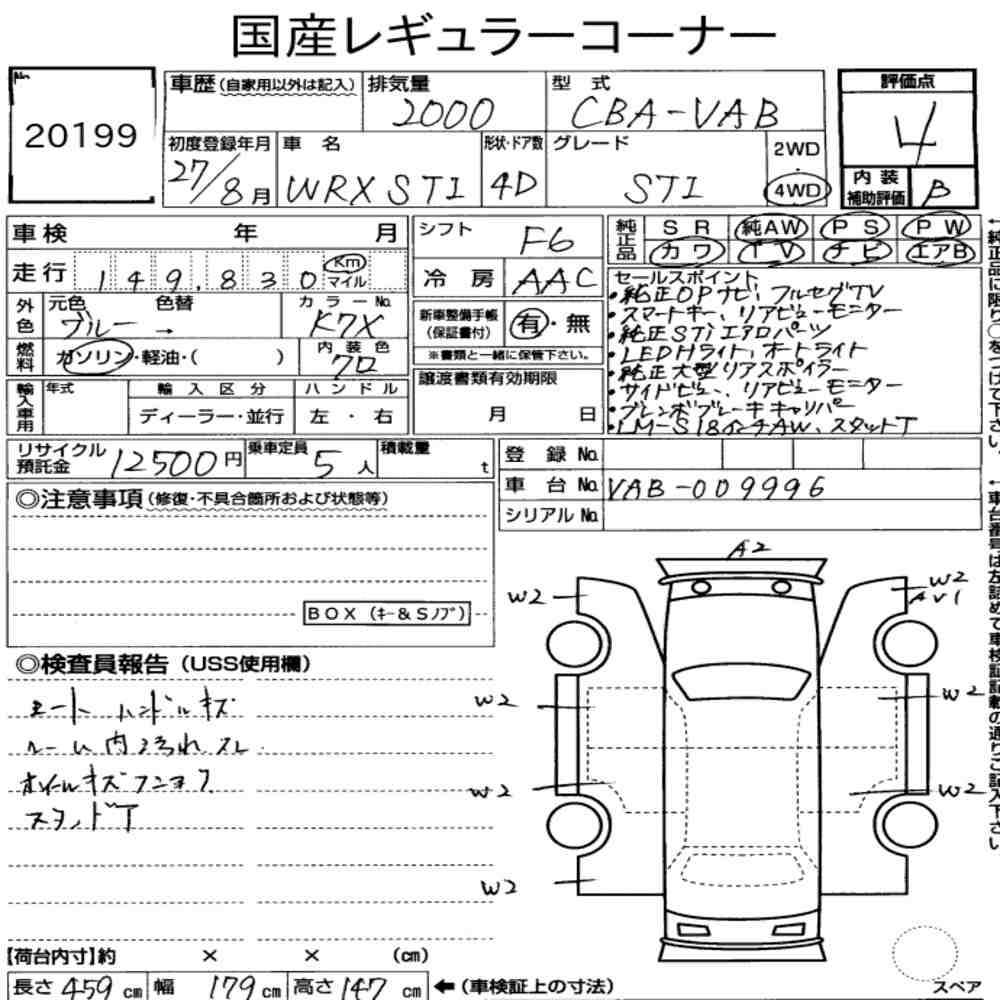 国産レギュラーコーナー
No.
20199
車歴(自家用以外は記入) 排気量 2000 型式 CBA-VAB
初度登録年月 27/8月 車名 WRX STI 形状・ドア数 4D グレード STI 2WD・4WD
評価点 4
内装補助評価 B
車検 年 月
走行 149,830 Km マイル
外色 元色 ブルー → 色替 カラーNo. K7X
燃料 ガソリン・軽油・( ) 内装色 クロ
輸入車用 年式 輸入区分 ディーラー・並行 ハンドル 左・右
シフト F6
冷房 AAC
新車整備手帳(保証書付) 有・無
※書類と一緒に保管下さい。
譲渡書類有効期限 月 日
純正品 SR 純AW PS PW
カワ TV ナビ エアB
セールスポイント
・純正OPナビ、フルセグTV
・スマートキー、リアビューモニター
・純正STiエアロパーツ
・LEDHライト、オートライト
・純正大型リアスポイラー
・サイドビュー、リアビューモニター
・ブレンボブレーキキャリパー
・LM-S18インチAW、スタットT
←純正品に限り○をつけて下さい。
リサイクル預託金 12500円 乗車定員 5人 積載量 t
登録No.
車台No. VAB-009996
シリアルNo.
←車台番号は左詰めで車検証記載の通りご記入下さい。
◎注意事項(修復・不具合箇所および状態等)
BOX (キー&Sノブ)
◎検査員報告(USS使用欄)
シート ハンドルキズ
ルーム内ヨゴれ スレ
ホイールキズ フショク
スタッドT
A2
W2
W2
AV1
W2
W2
W2
W2
W2
【荷台内寸】約 × × (cm)
長さ 459 cm 幅 179 cm 高さ 147 cm ←(車検証上の寸法)
スペア